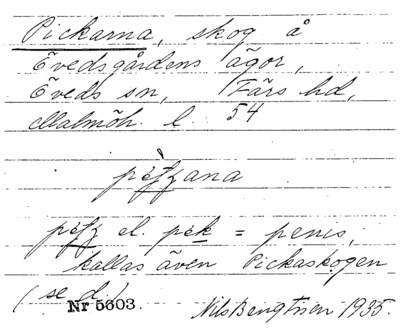 Pickarna, skog å
Övedsgårdens ägor,
Öveds sn, Färs hd,
Malmöh. l 54
el. = penis,
kallas även Pickaskogen
(se d.)
Nr 5603.
Nils Bengtsson 1935.